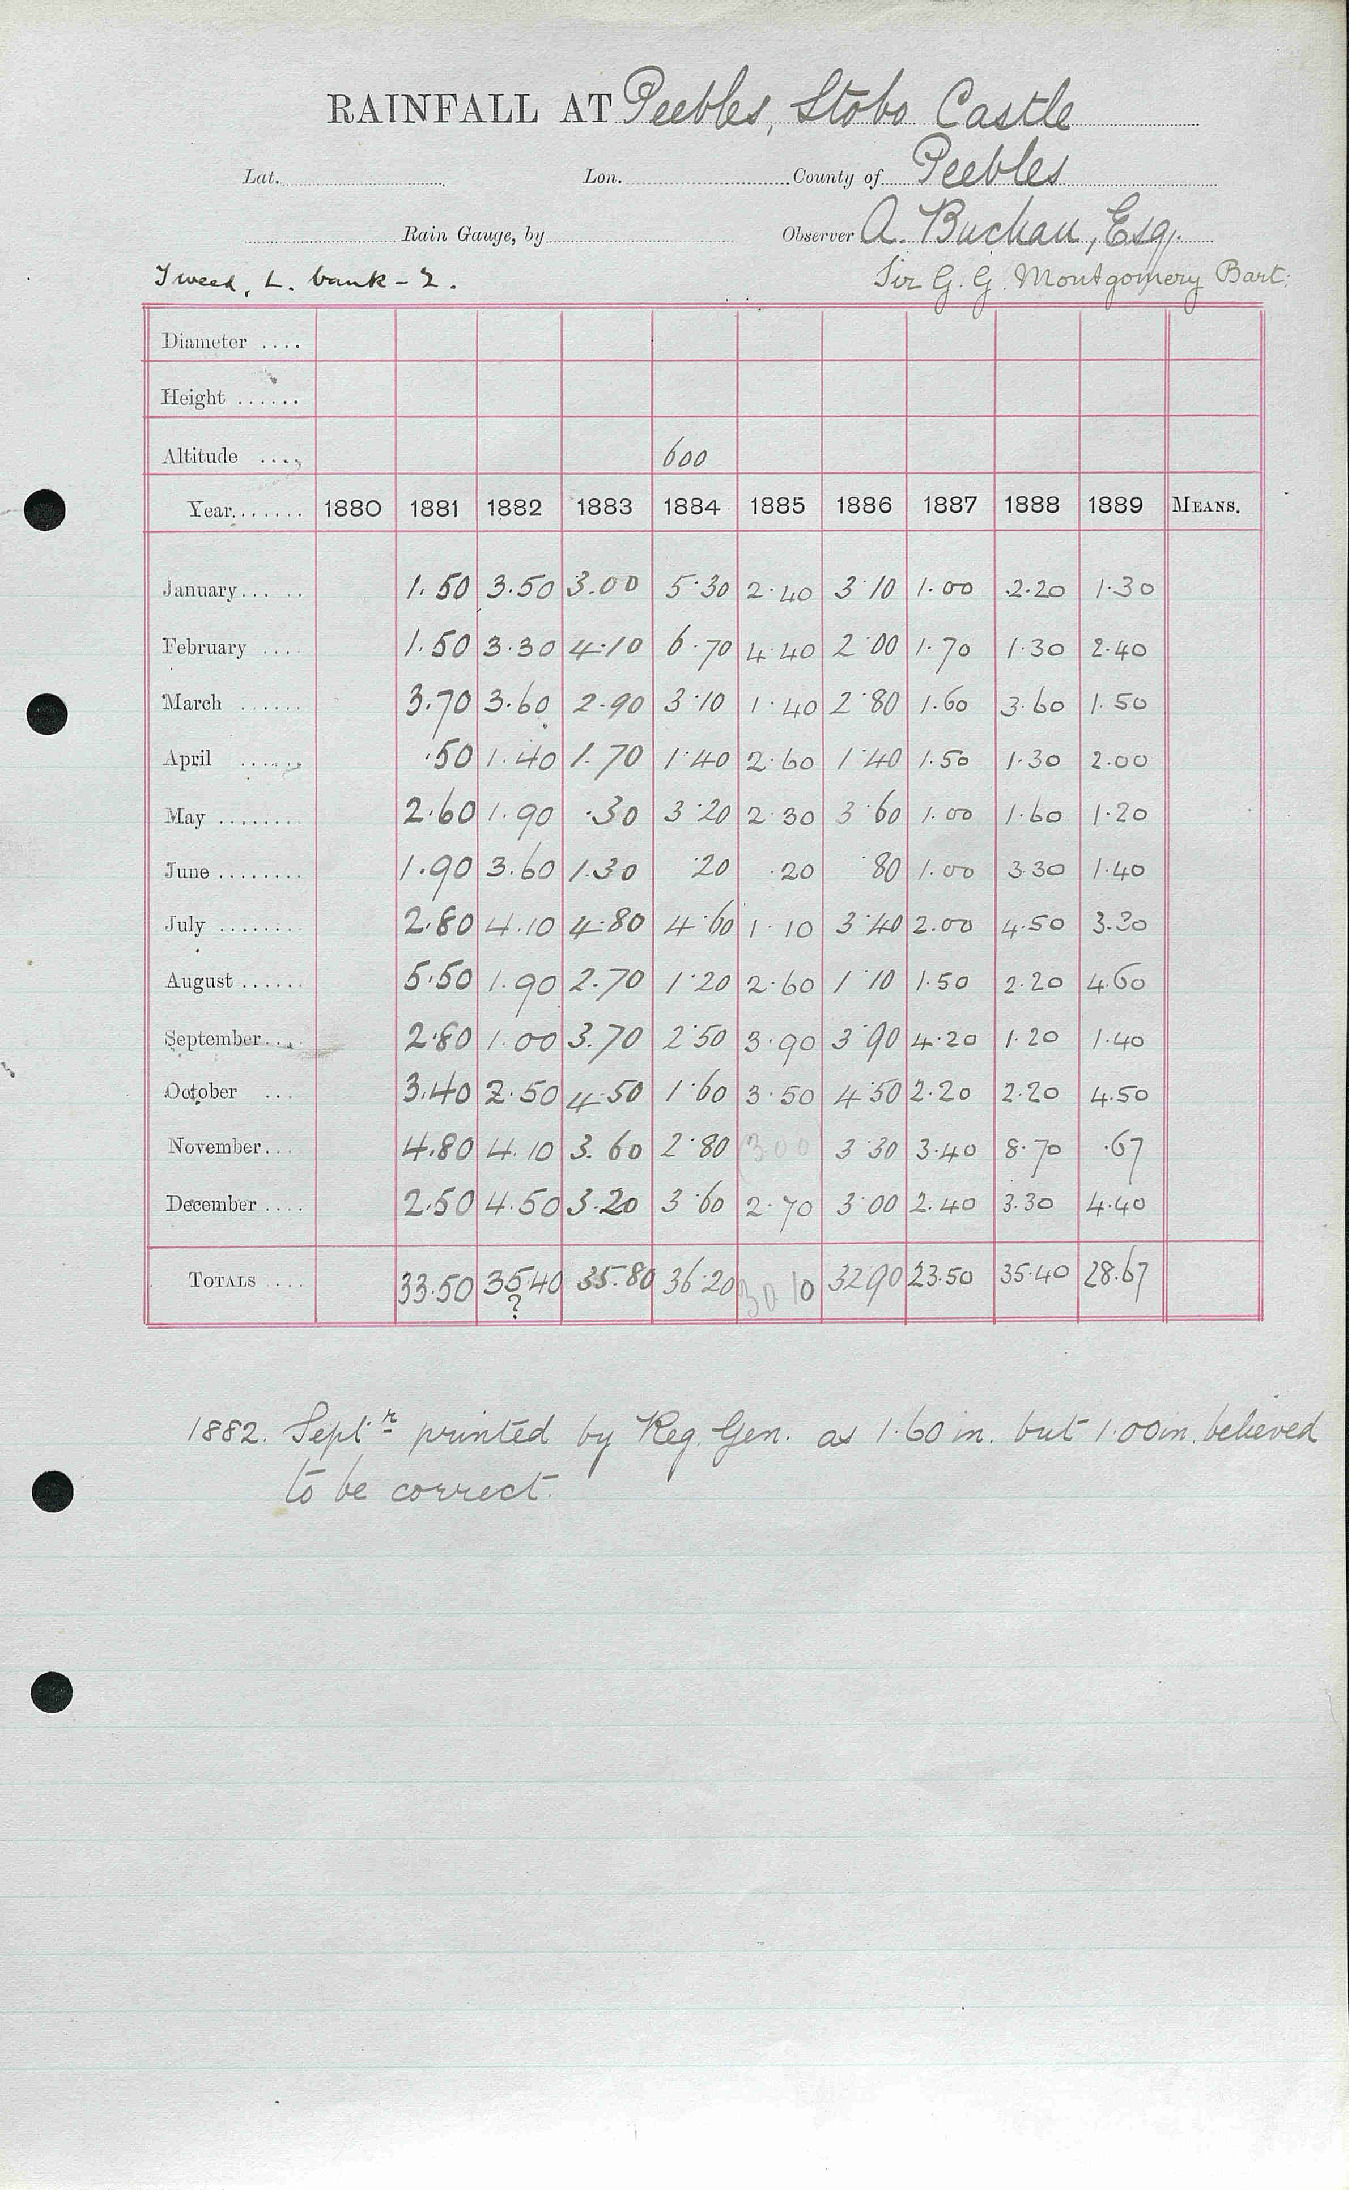 RAINFALL AT Peebles, Stobo Castle
Lat. Lon. County of Peebles
Rain Gauge, by Observer A. Buchan, Esq.
Tweed, L. bank - 2. Sir G. G. Montgomery Bart.
Diameter ....
Height ......
Altitude .... 600
Year....... 1880 1881 1882 1883 1884 1885 1886 1887 1888 1889 MEANS.
January... .. 1.50 3.50 3.00 5.30 2.40 3.10 1.00 2.20 1.30
February .... 1.50 3.30 4.10 6.70 4.40 2.00 1.70 1.30 2.40
March ...... 3.70 3.60 2.90 3.10 1.40 2.80 1.60 3.60 1.50
April ...... .50 1.40 1.70 1.40 2.60 1.40 1.50 1.30 2.00
May ........ 2.60 1.90 .30 3.20 2.30 3.60 1.00 1.60 1.20
June ........ 1.90 3.60 1.30 .20 .20 .80 1.00 3.30 1.40
July ........ 2.80 4.10 4.80 4.60 1.10 3.40 2.00 4.50 3.30
August ...... 5.50 1.90 2.70 1.20 2.60 1.10 1.50 2.20 4.60
September.... 2.80 1.00 3.70 2.50 3.90 3.90 4.20 1.20 1.40
October ... 3.40 2.50 4.50 1.60 3.50 4.50 2.20 2.20 4.50
November... 4.80 4.10 3.60 2.80 (3.00) 3.30 3.40 8.70 .67
December .... 2.50 4.50 3.20 3.60 2.70 3.00 2.40 3.30 4.40
TOTALS .... 33.50 35.40 35.80 36.20 30.10 32.90 23.50 35.40 28.67
?
1882. Septr printed by Reg. Gen. as 1.60 in. but 1.00in. believed
to be correct.